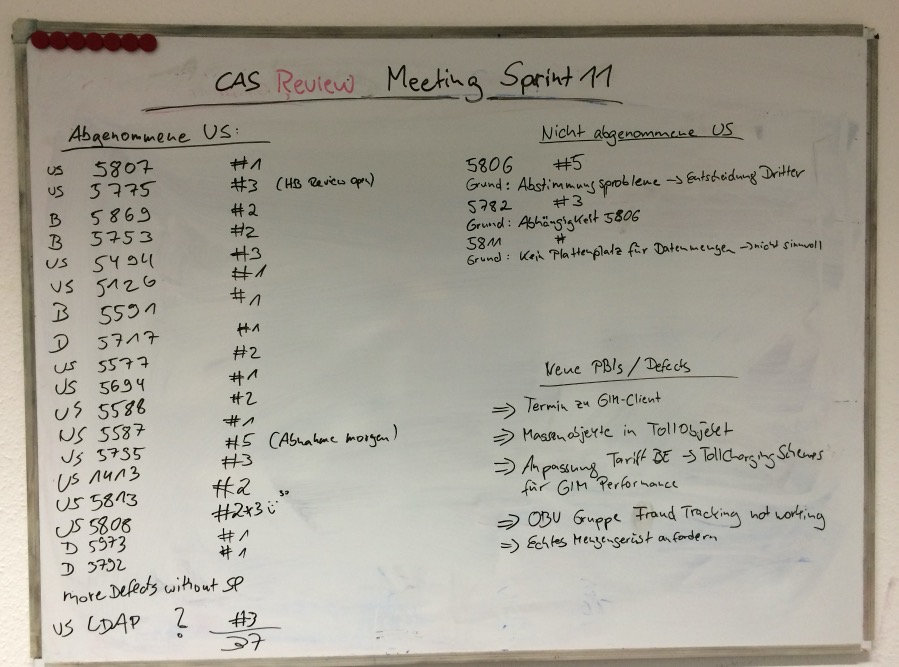 CAS Review Meeting Sprint 11
Abgenommene US:
US 5807 #1
US 5775 #3 (HB Review open)
B 5869 #2
B 5753 #2
US 5494 #3
US 5126 #1
B 5591 #1
D 5717 #1
US 5577 #2
US 5694 #1
US 5588 #2
US 5587 #1
US 5735 #5 (Abnahme morgen)
US 1413 #3
US 5813 #2
US 5808 #2+3
D 5973 #1
D 5792 #1
more Defects without SP
US LDAP ? #3
37
Nicht abgenommene US
5806 #5
Grund: Abstimmungsprobleme → Entscheidung Dritter
5782 #3
Grund: Abhängigkeit 5806
5811 #
Grund: Kein Plattenplatz für Datenmengen → nicht sinnvoll
Neue PBIs / Defects
⇒ Termin zu GIM-Client
⇒ Massenobjekte in TollObjekt
⇒ Anpassung Tariff BE → TollChargingSchemes
für GIM Performance
⇒ OBU Gruppe Fraud Tracking not working
⇒ Echtes Mengengerüst anfordern